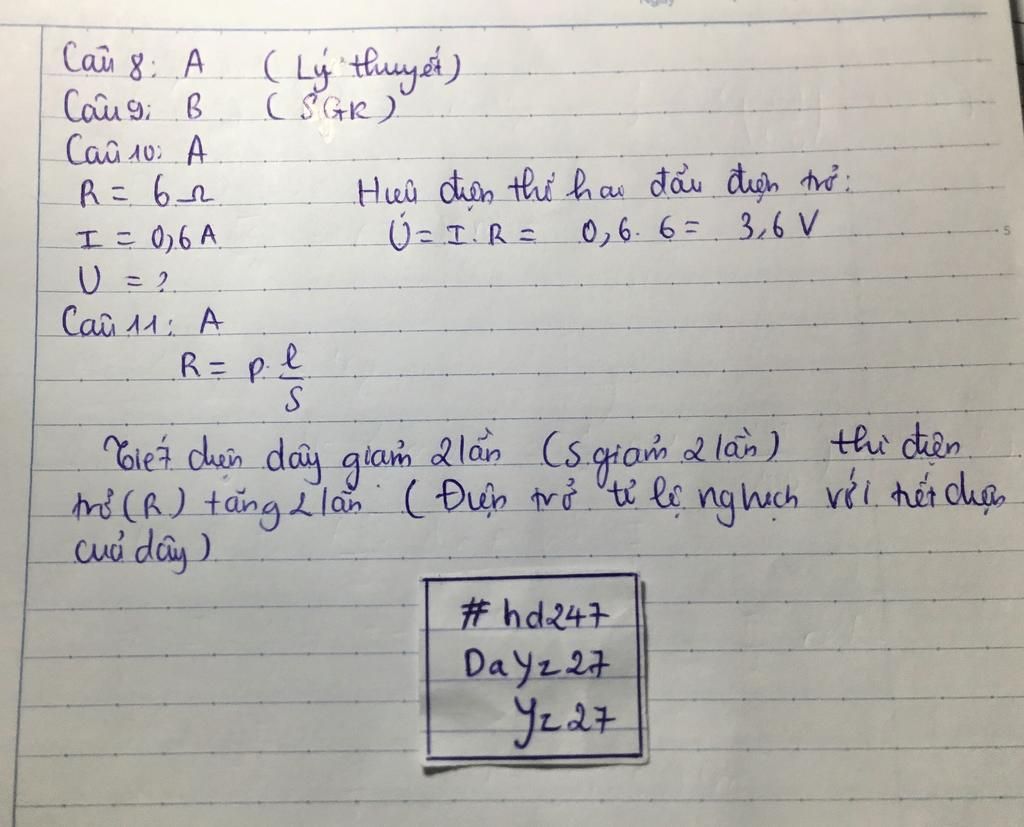 Câu 8: A ( Lý thuyết )
Câu 9: B ( SGK )
Câu 10: A
R = 6 Ω Hiệu điện thế hai đầu điện trở:
I = 0,6 A U = I . R = 0,6 . 6 = 3,6 V
U = ?
Câu 11: A
R = p . l/S
Tiết diện dây giảm 2 lần ( S giảm 2 lần ) thì điện
trở (R) tăng 2 lần ( Điện trở tỉ lệ nghịch với tiết diện
của dây )
# hd247
DaYz27
Yz27